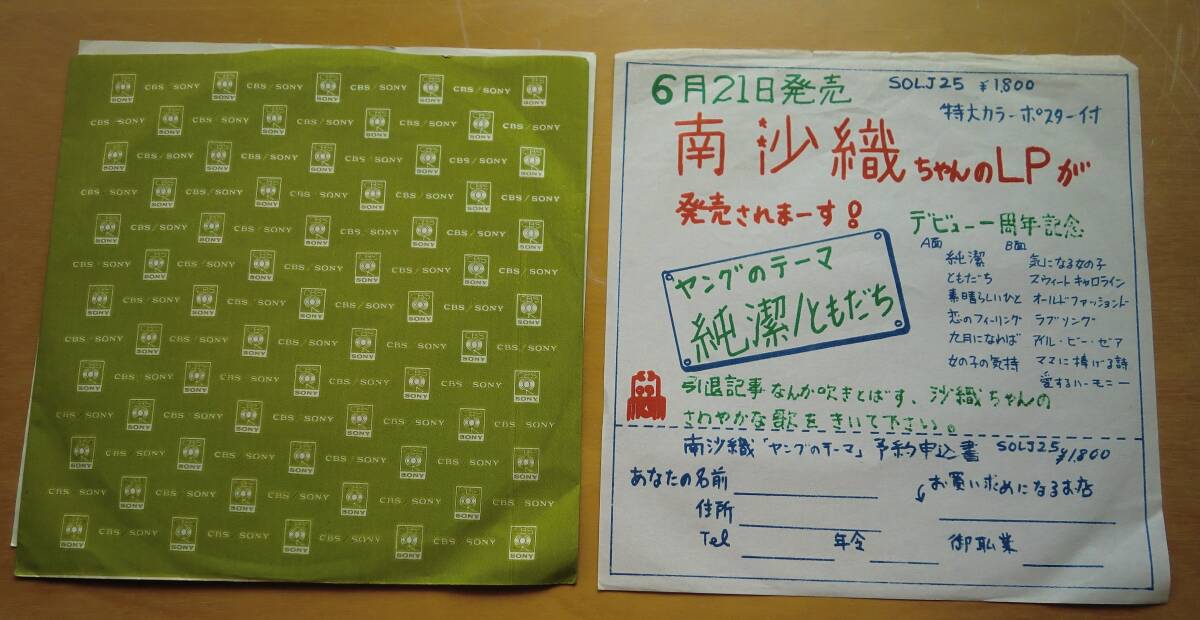 CBS / SONY
6月21日発売
SOLJ25 ¥1,800
特大カラーポスター付
南沙織ちゃんのLPが
発売されまーす!
デビュー一周年記念
ヤングのテーマ
純潔/ともだち
A面
純潔
ともだち
素晴らしいひと
恋のフィーリング
九月になれば
女の子の気持
B面
気になる女の子
スウィートキャロライン
オールドファッションド
ラブソング
アイル・ビー・ゼア
ママに捧げる詩
愛するハーモニー
引退記事なんか吹きとばす、沙織ちゃんの
さわやかな歌をきいて下さい。
南沙織「ヤングのテーマ」予約申込書 SOLJ25 ¥1,800
あなたの名前
住所
Tel 年令
お買い求めになるお店
御職業